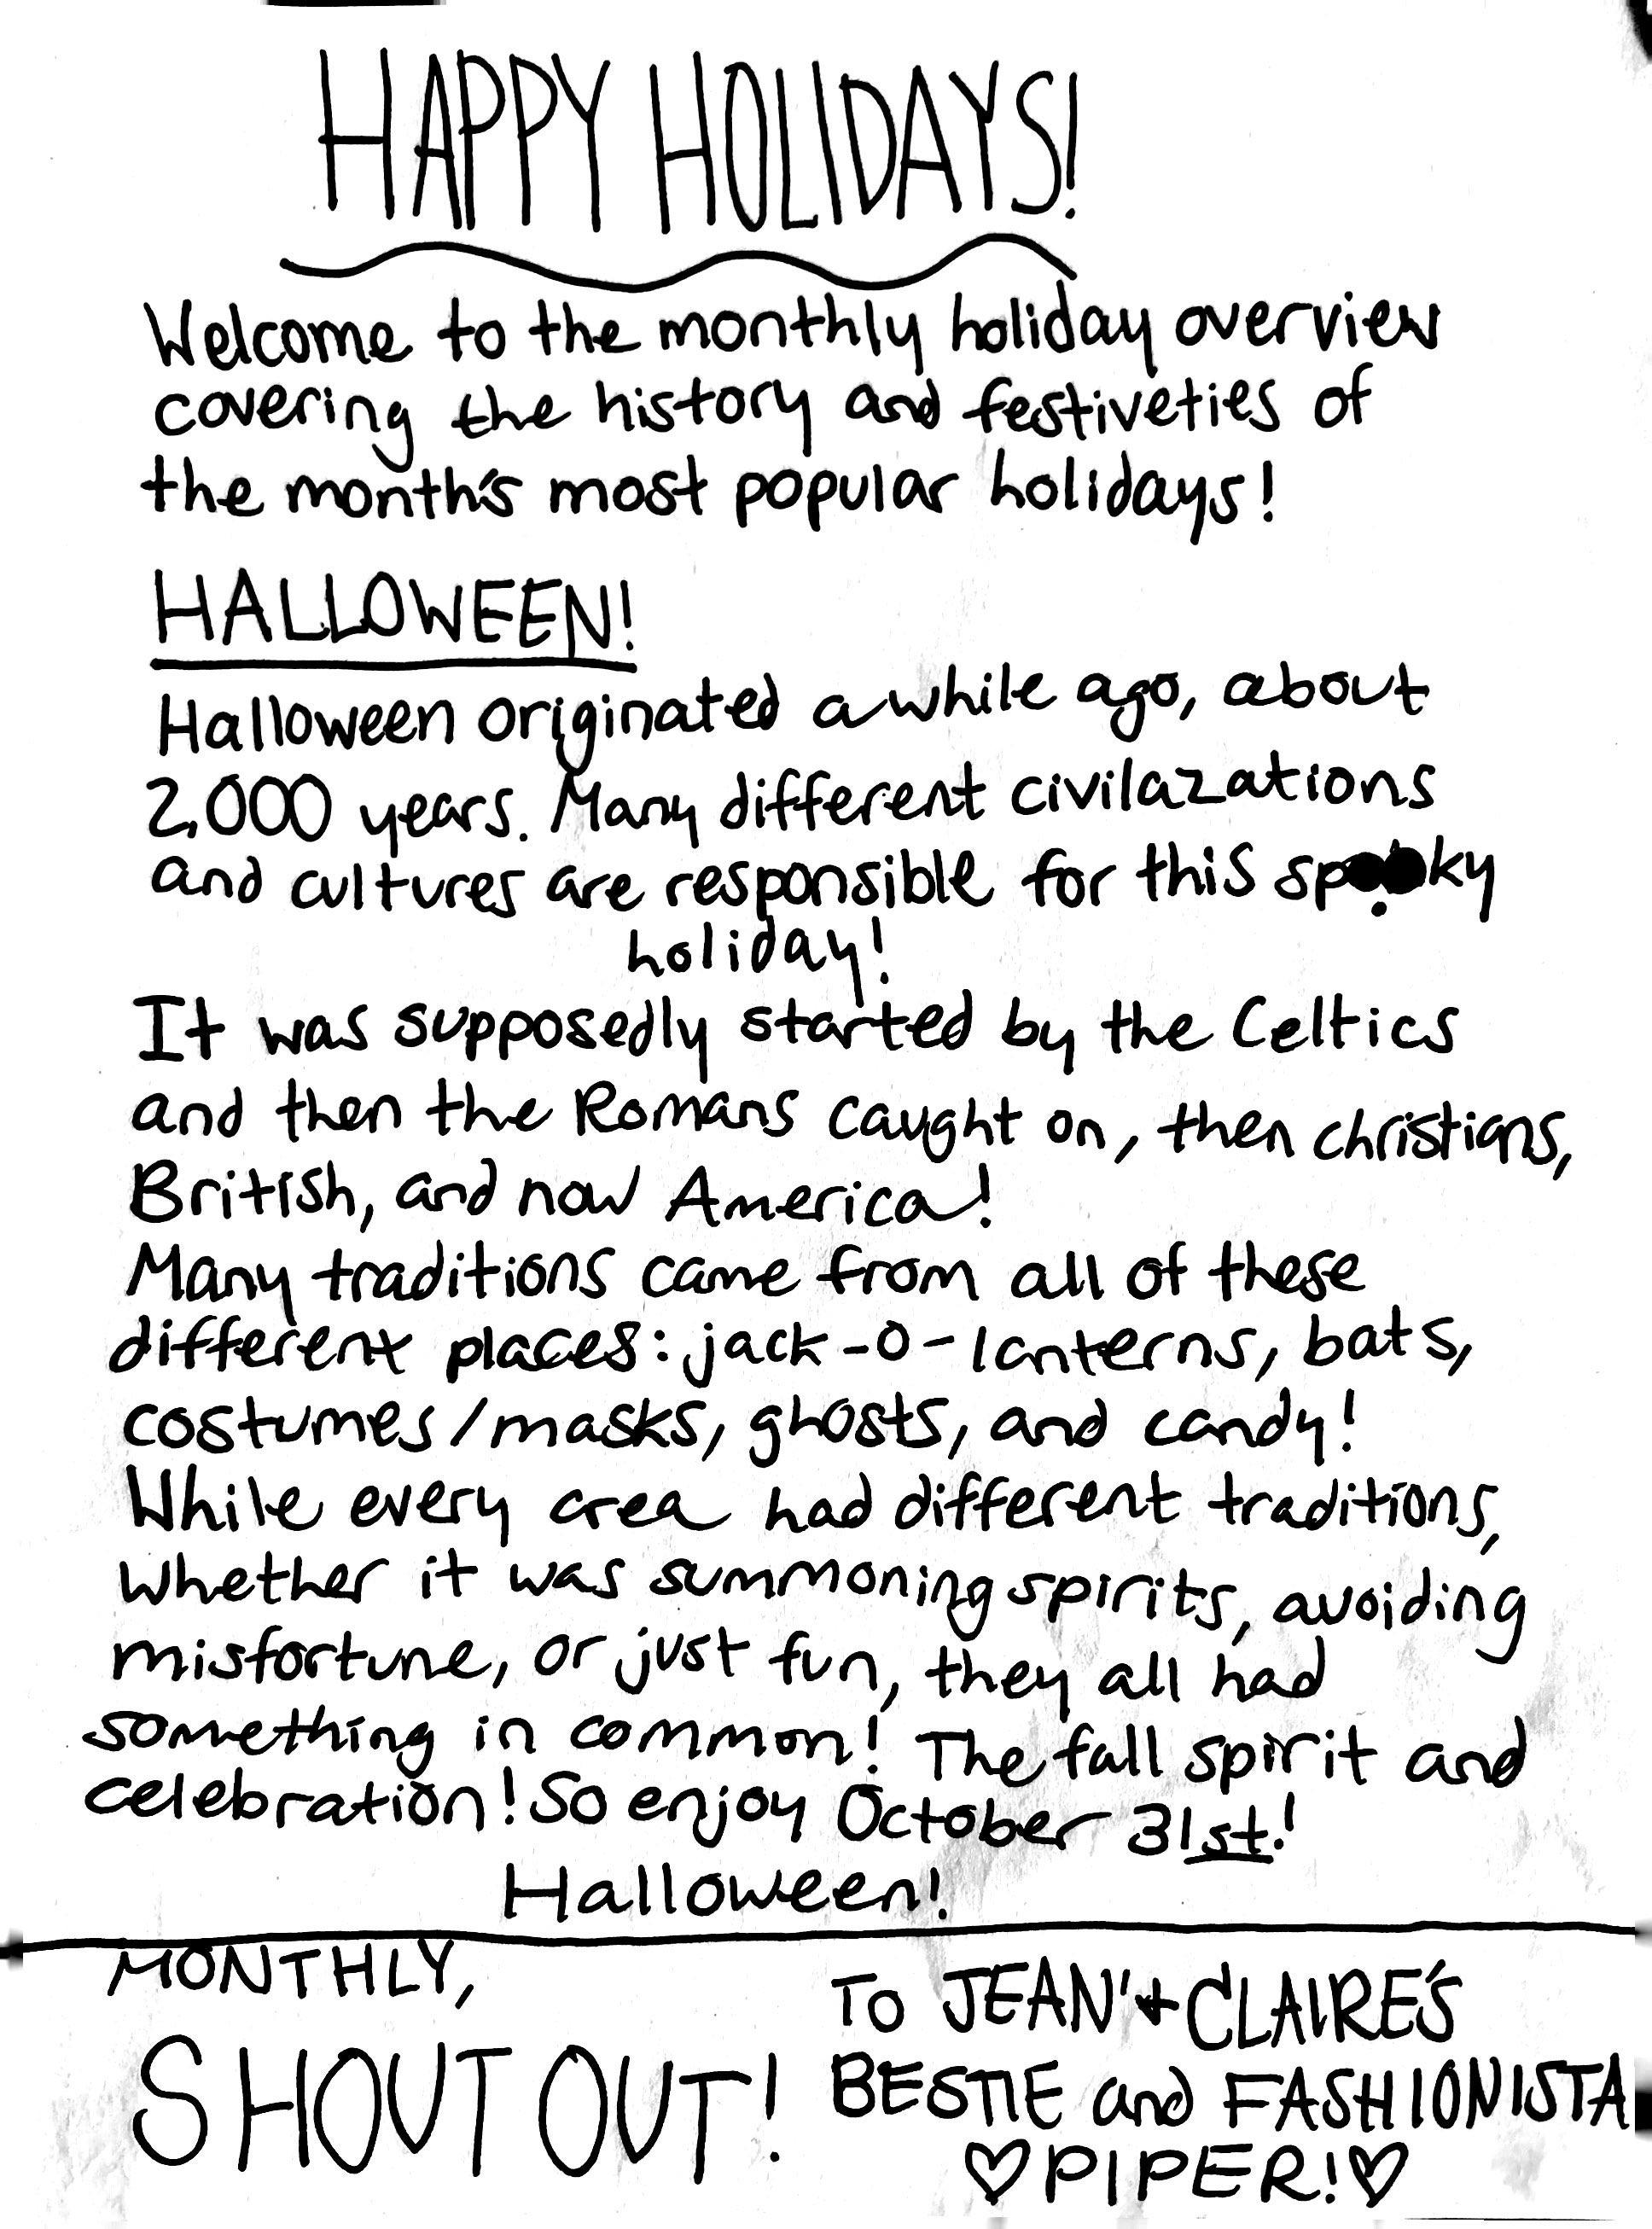 HAPPY HOLIDAYS!
Welcome to the monthly holiday overview
covering the history and festiveties of
the month's most popular holidays!
HALLOWEEN!
Halloween originated a while ago, about
2,000 years. Many different civilazations
and cultures are responsible for this spooky
holiday!
It was supposedly started by the Celtics
and then the Romans caught on, then christians,
British, and now America!
Many traditions came from all of these
different places: jack-o-lanterns, bats,
costumes/masks, ghosts, and candy!
While every area had different traditions,
whether it was summoning spirits, avoiding
misfortune, or just fun, they all had
something in common! The fall spirit and
celebration! So enjoy October 31st!
Halloween!
MONTHLY,
SHOUT OUT!
TO JEAN'+CLAIRE'S
BESTIE and FASHIONISTA
♡PIPER!♡